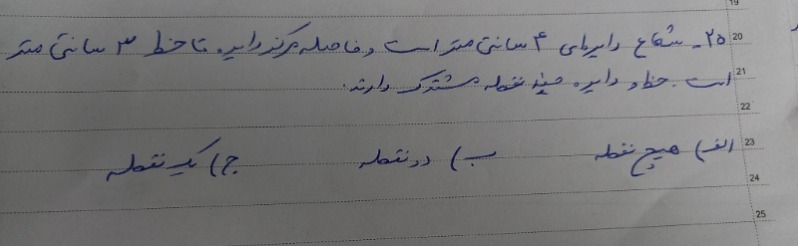 19
20 ۲۵- شعاع دایره‌ای ۴ سانتی متر است و فاصله مرکز دایره تا خط ۳ سانتی متر
21 است. خط و دایره چند نقطه مشترک دارند.
22
23 الف) هیچ نقطه ب) دو نقطه ج) یک نقطه
24
25